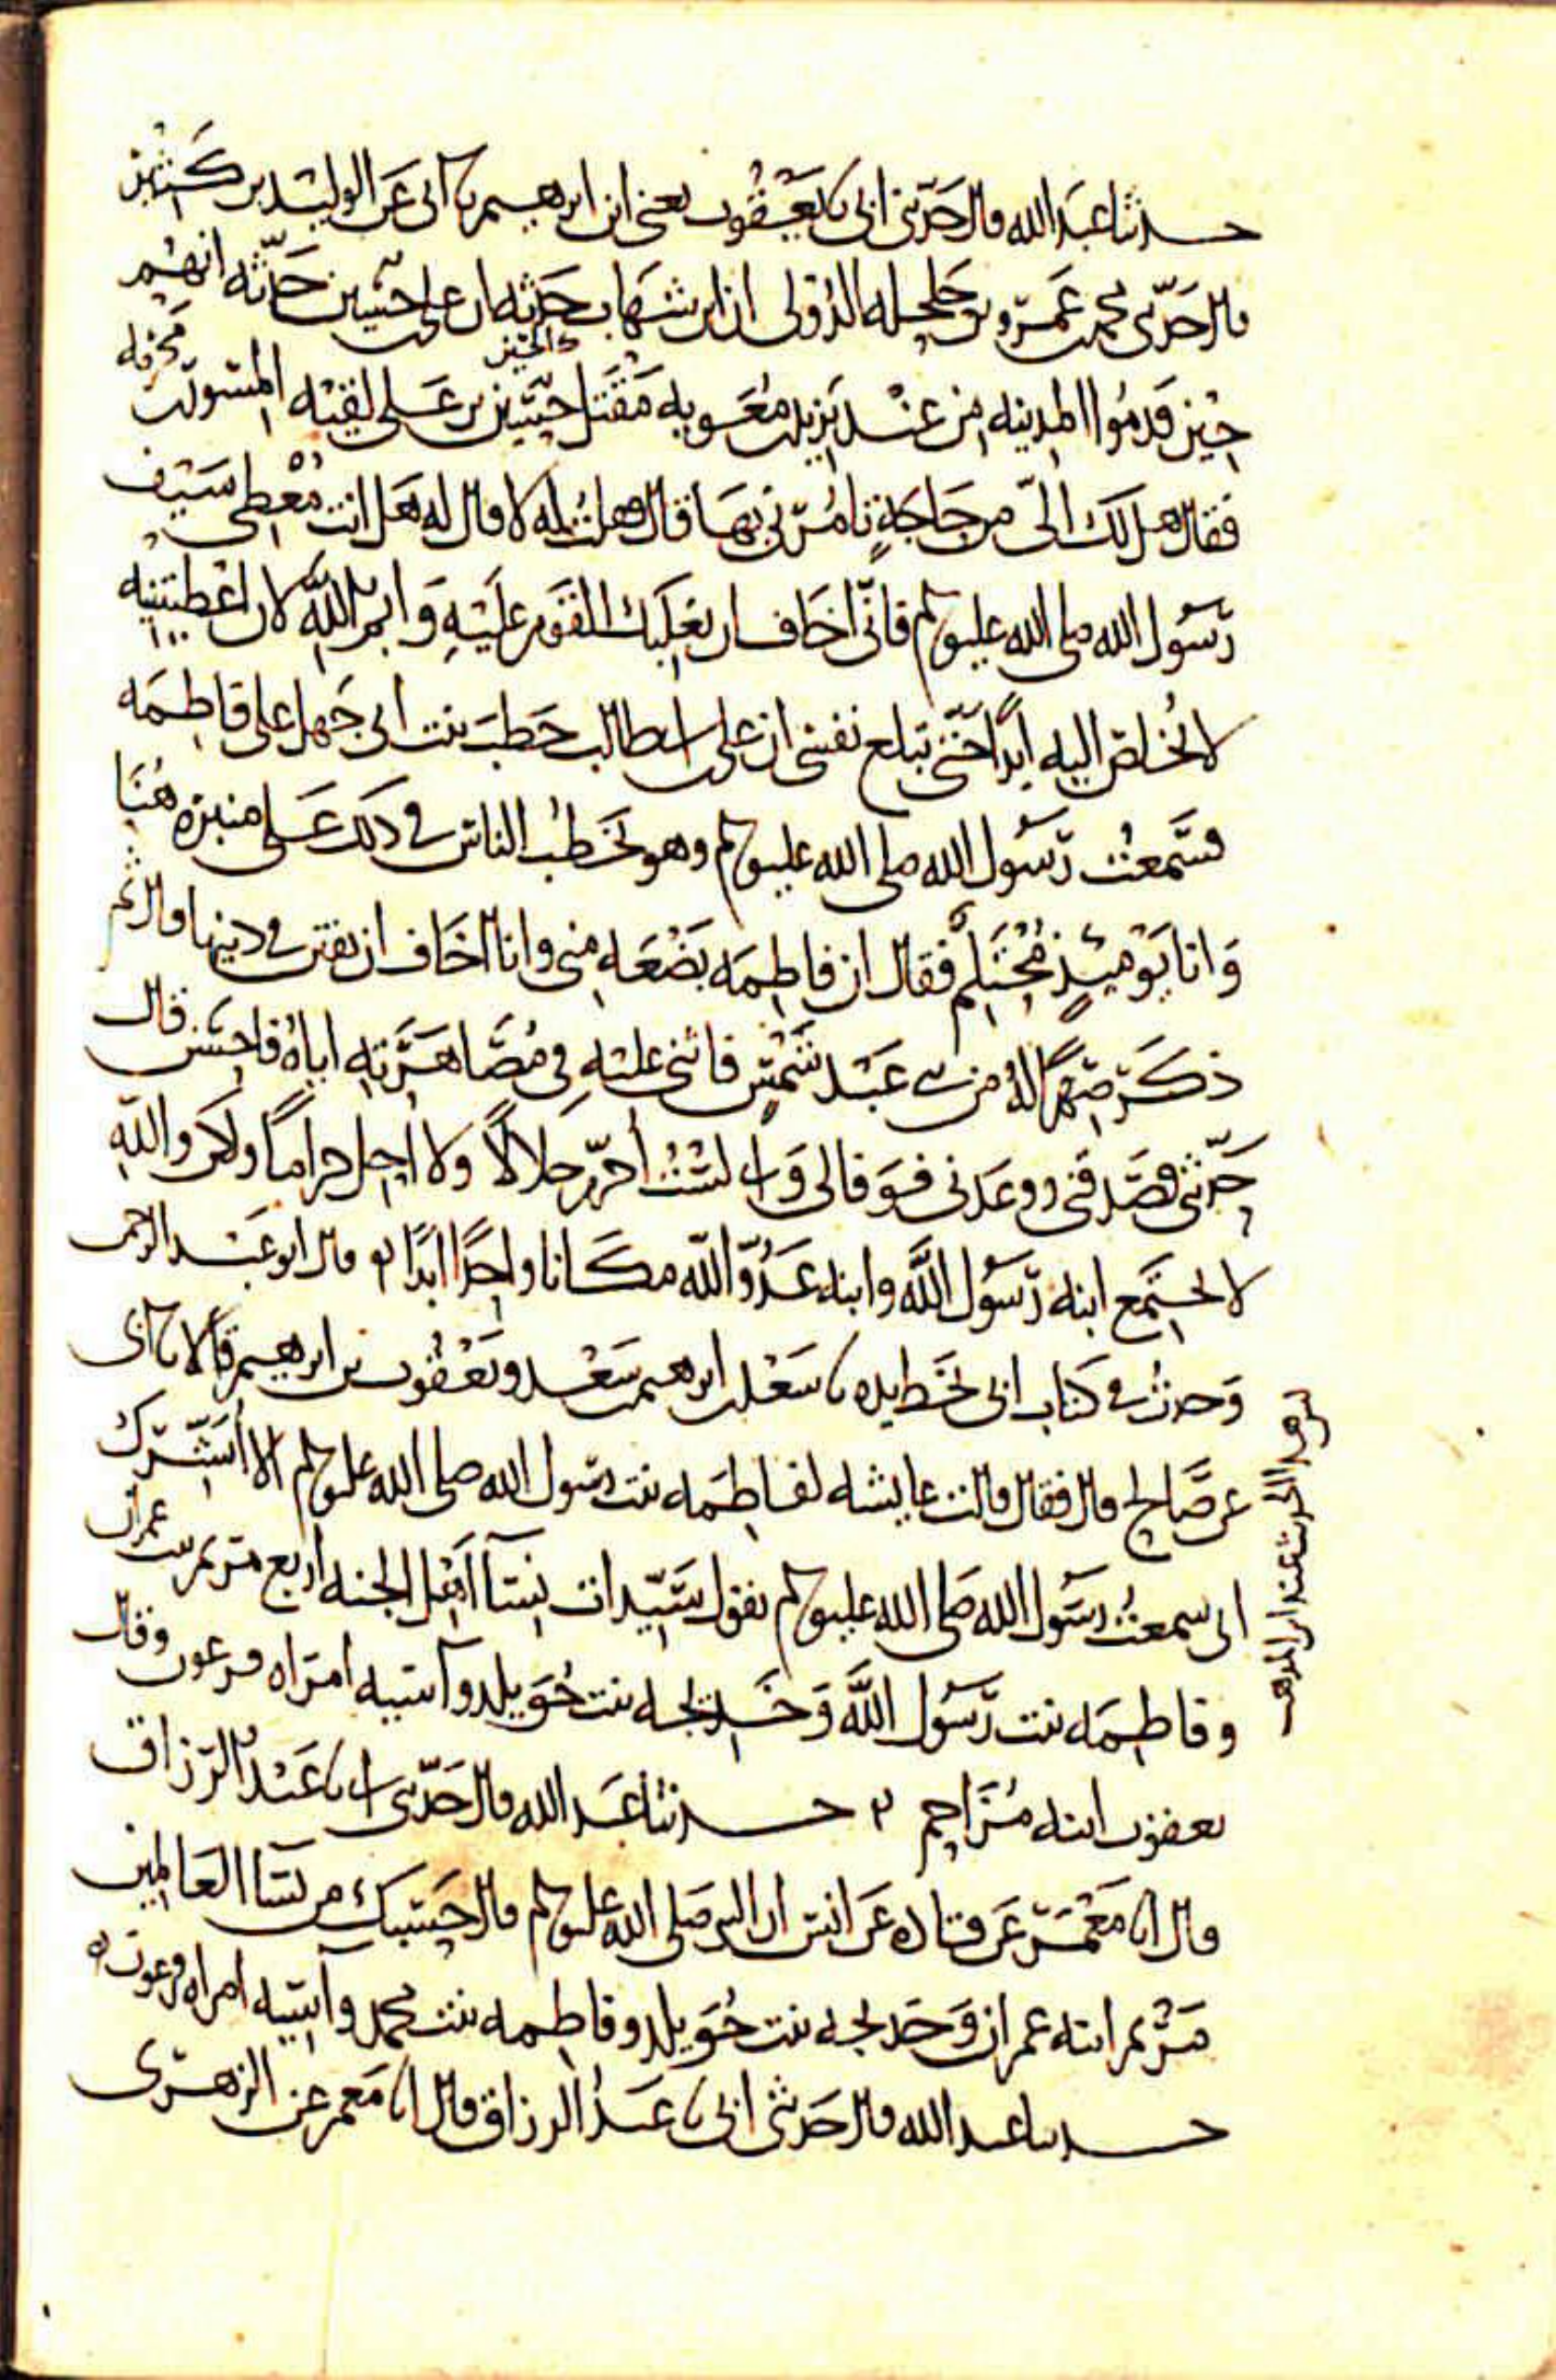 حدثنا عبد الله قال حدثني ابي نا يعقوب يعني ابن ابرهيم نا ابي عن الوليد بن كثير
قال حدثني محمد بن عمرو بن حلحله الدؤلي ان ابن شهاب حدثه ان علي بن حسين حدثه انهم
حين قدموا المدينه من عند يزيد بن معويه مقتل حسين بن علي لقيه المسور بن مخرمه
فقال هل لك الي من حاجة تامرني بها قال فقلت له لا قال له هل انت معطي سيف
رسول الله صلى الله عليه وسلم فاني اخاف ان يغلبك القوم عليه وايم الله لان اعطيتنيه
لا يخلص اليه ابدا حتى تبلغ نفسي ان علي بن ابي طالب خطب بنت ابي جهل على فاطمه
فسمعت رسول الله صلى الله عليه وسلم وهو يخطب الناس في ذلك على منبره هذا
وانا يومئذ محتلم فقال ان فاطمه بضعه مني وانا اخاف ان تفتن في دينها قال ثم
ذكر صهرا له من بني عبد شمس فاثنى عليه في مصاهرته اياه فاحسن قال
حدثني فصدقني ووعدني فوفا لي واني لست احرم حلالا ولا احل حراما ولكن والله
لا تجتمع ابنه رسول الله وابنه عدو الله مكانا واحدا ابدا قال ابو عبد الرحمن
وجدت في كتاب ابي بخط يده نا سعد بن ابرهيم بن سعد ويعقوب بن ابرهيم قالا نا ابي
عن صالح قال فقال قالت عايشه لفاطمه بنت رسول الله صلى الله عليه وسلم الا ابشرك
اني سمعت رسول الله صلى الله عليه وسلم يقول سيدات نسآ اهل الجنه اربع مريم بنت عمران
وفاطمه بنت رسول الله وخديجه بنت خويلد وآسيه امراه فرعون وقال
يعقوب ابنه مزاحم حدثنا عبد الله قال حدثني ابي نا عبد الرزاق
قال انا معمر عن قتاده عن انس ان النبي صلى الله عليه وسلم قال حسبك من نسا العالمين
مريم ابنه عمران وخديجه بنت خويلد وفاطمه بنت محمد وآسيه امراه فرعون
حدثنا عبد الله قال حدثني ابي نا عبد الرزاق قال انا معمر عن الزهري